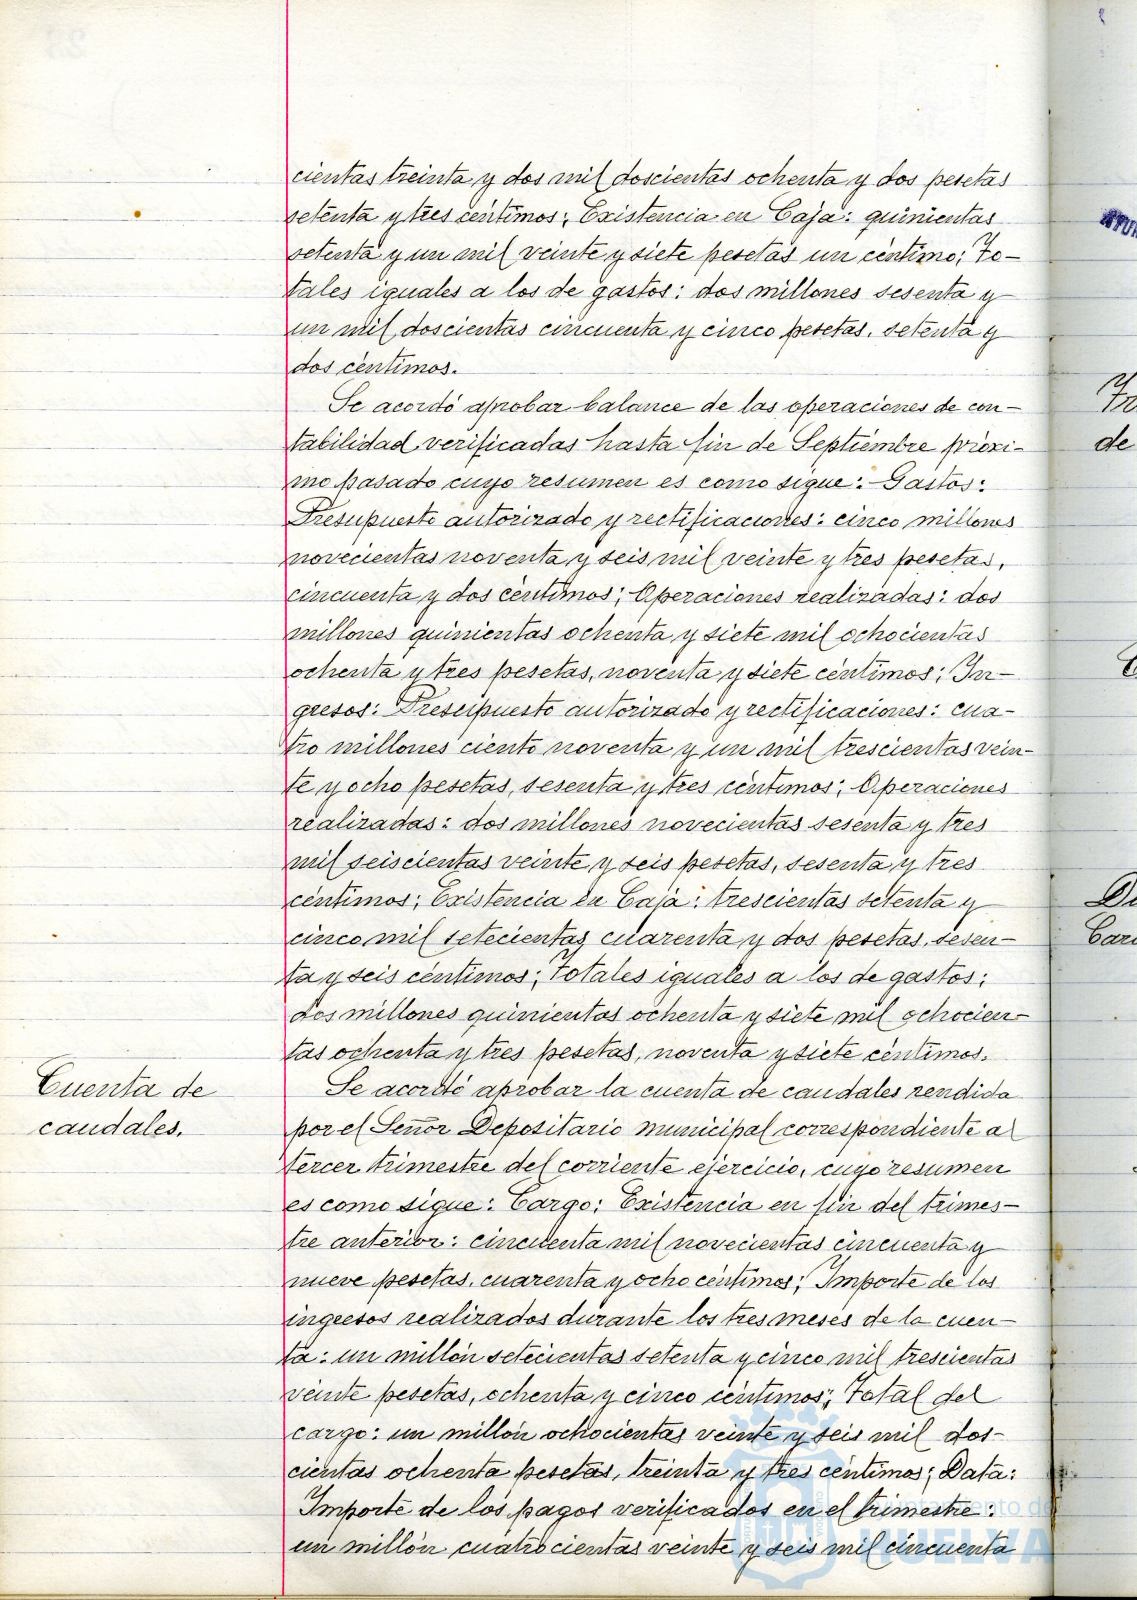 cientas treinta y dos mil doscientas ochenta y dos pesetas
setenta y tres céntimos; Existencia en Caja: quinientas
setenta y un mil veinte y siete pesetas un céntimo; To-
tales iguales a los de gastos: dos millones sesenta y
un mil doscientas cincuenta y cinco pesetas, setenta y
dos céntimos.
Se acordó aprobar balance de las operaciones de con-
tabilidad verificadas hasta fin de Septiembre próxi-
mo pasado cuyo resumen es como sigue: Gastos:
Presupuesto autorizado y rectificaciones: cinco millones
novecientas noventa y seis mil veinte y tres pesetas,
cincuenta y dos céntimos; Operaciones realizadas: dos
millones quinientas ochenta y siete mil ochocientas
ochenta y tres pesetas, noventa y siete céntimos; In-
gresos: Presupuesto autorizado y rectificaciones: cua-
tro millones ciento noventa y un mil trescientas vein-
te y ocho pesetas, sesenta y tres céntimos; Operaciones
realizadas: dos millones novecientas sesenta y tres
mil seiscientas veinte y seis pesetas, sesenta y tres
céntimos; Existencia en Caja: trescientas setenta y
cinco mil setecientas cuarenta y dos pesetas, sesen-
ta y seis céntimos; Totales iguales a los de gastos;
dos millones quinientas ochenta y siete mil ochocien-
tas ochenta y tres pesetas, noventa y siete céntimos.
Cuenta de
caudales.
Se acordó aprobar la cuenta de caudales rendida
por el Señor Depositario municipal correspondiente al
tercer trimestre del corriente ejercicio, cuyo resumen
es como sigue: Cargo: Existencia en fin del trimes-
tre anterior: cincuenta mil novecientas cincuenta y
nueve pesetas, cuarenta y ocho céntimos; Importe de los
ingresos realizados durante los tres meses de la cuen-
ta: un millón setecientas setenta y cinco mil trescientas
veinte pesetas, ochenta y cinco céntimos; Total del
cargo: un millón ochocientas veinte y seis mil dos-
cientas ochenta pesetas, treinta y tres céntimos; Data:
Importe de los pagos verificados en el trimestre:
un millón cuatrocientas veinte y seis mil cincuenta
Ayuntamiento de
HUELVA
de